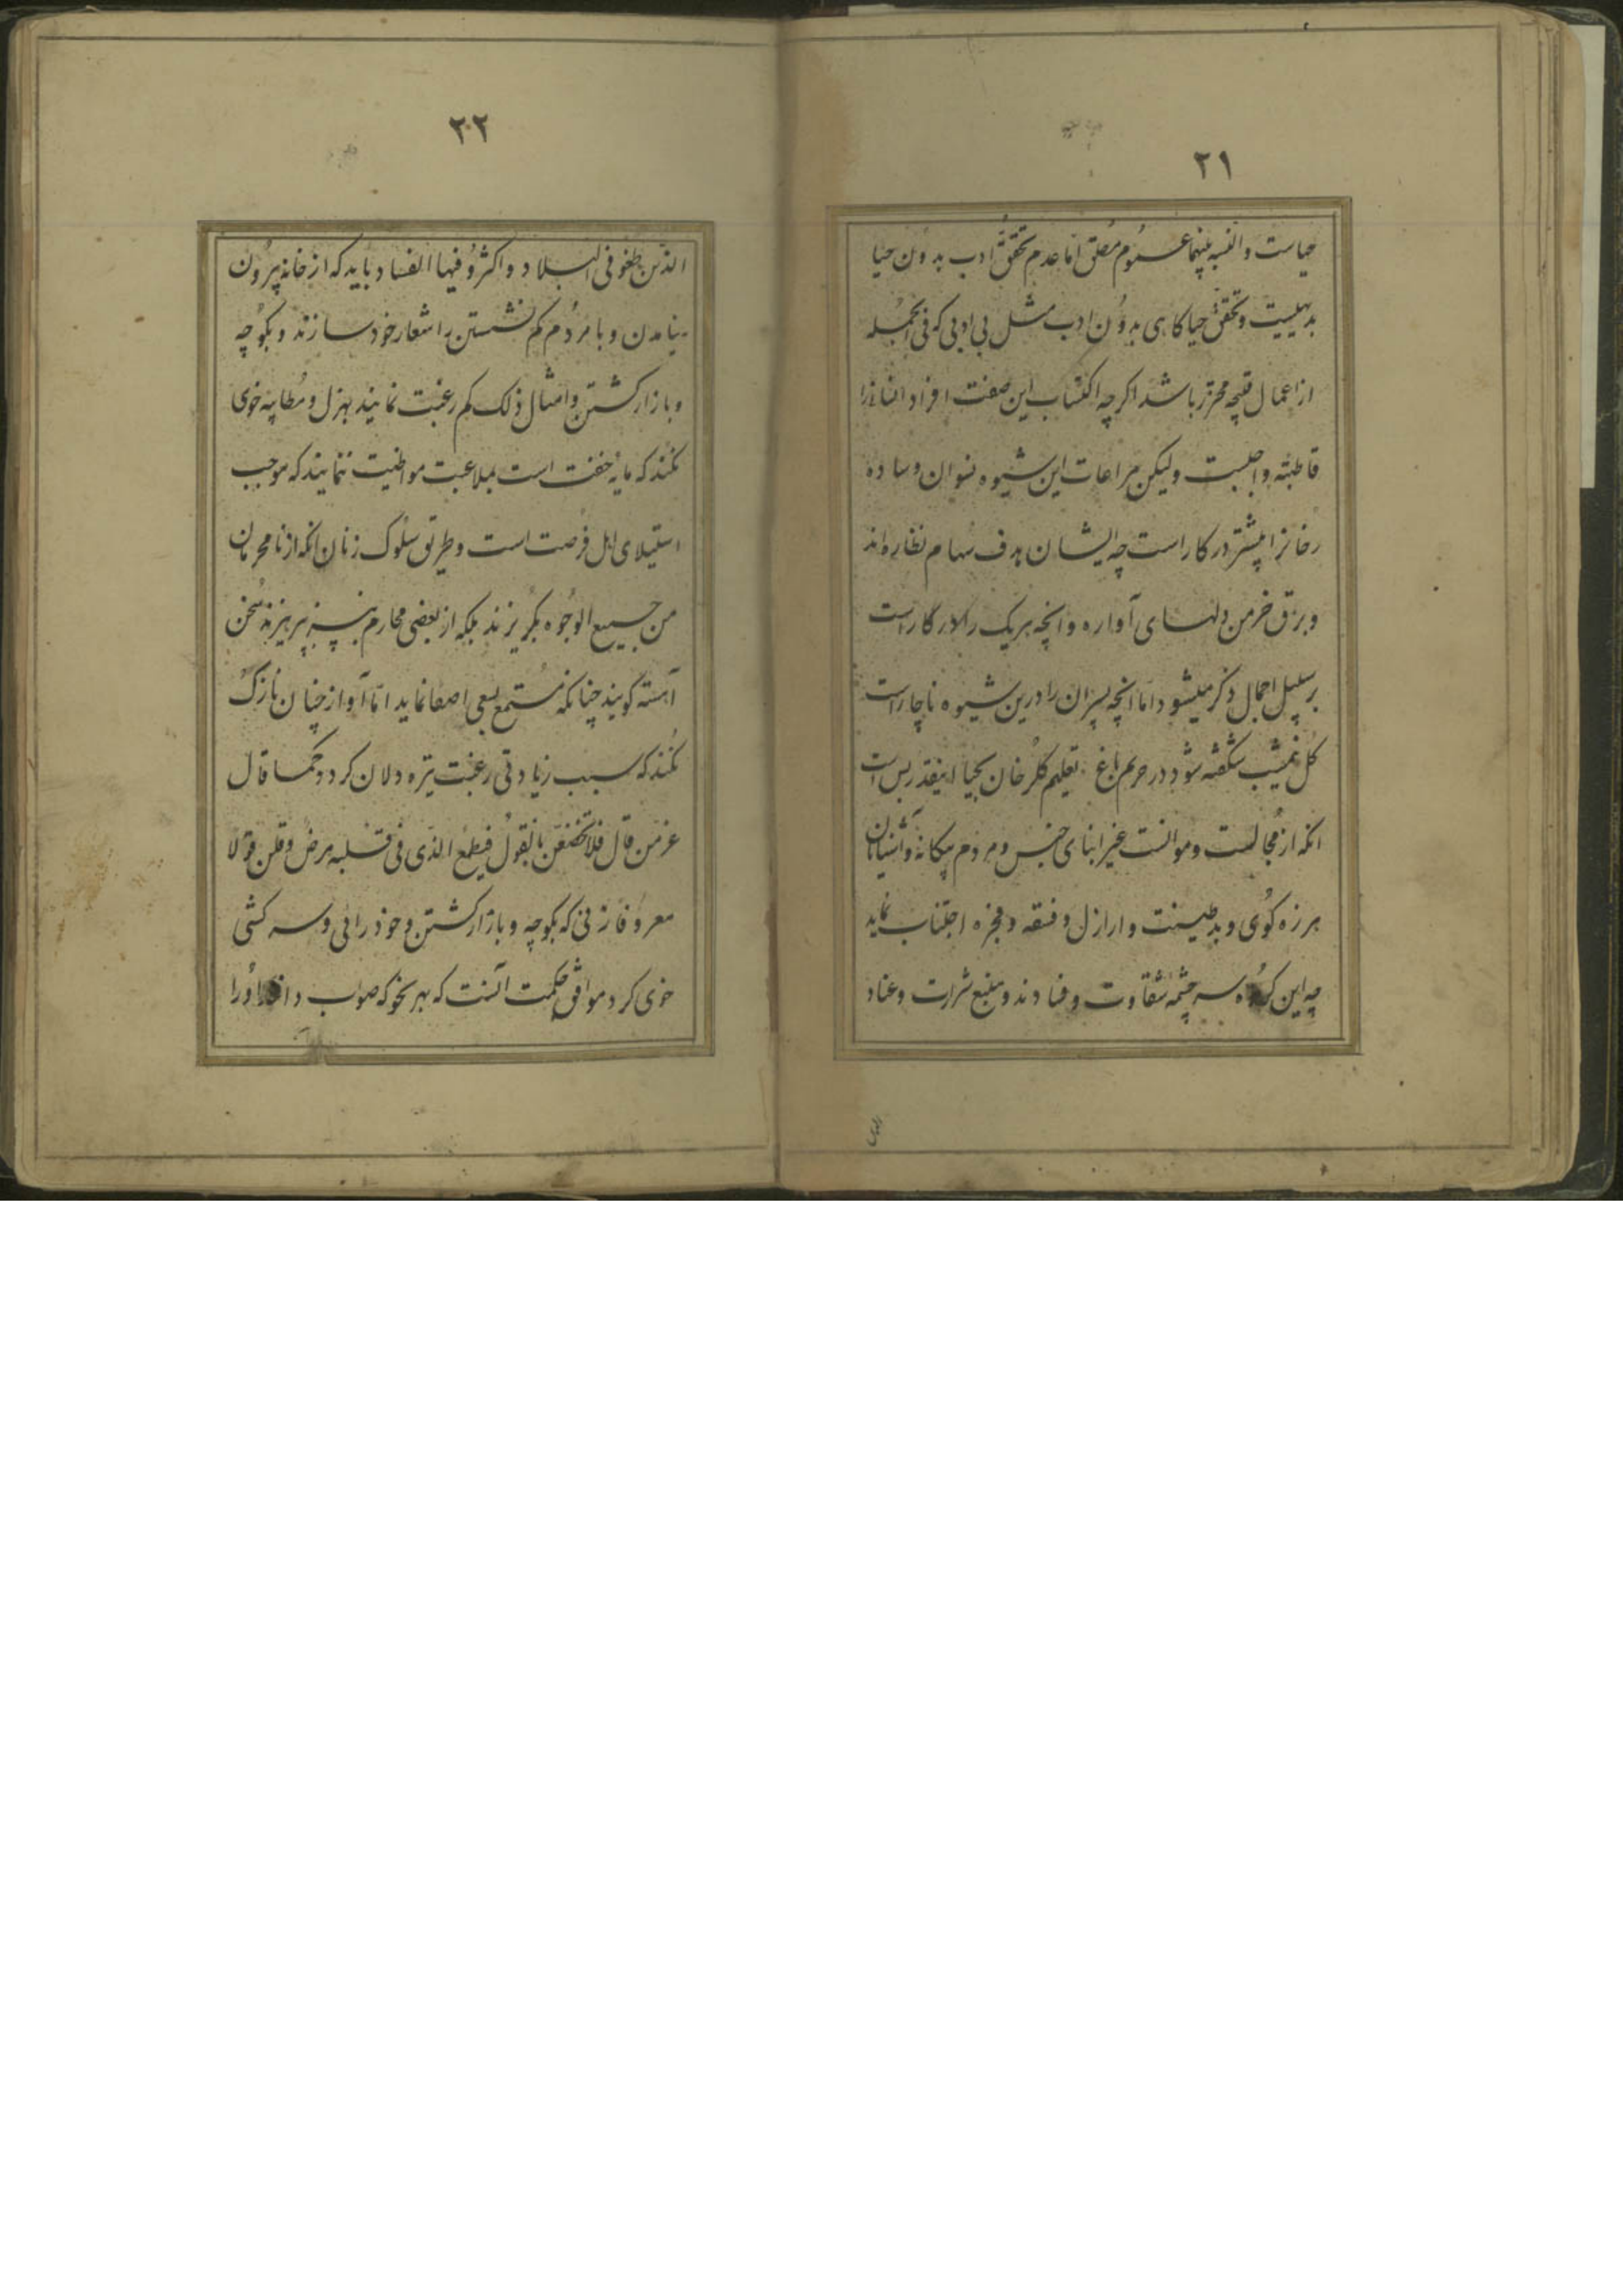 ۲۱
حیاست والنسبه بینهما عموم مطلق اما عدم تحقق ادب بدون حیا
بدیهیست و تحقق حیا کاهی بدون ادب مثل بی ادبی که فی الجمله
از اعمال قبیحه محترز باشد اکرچه اکتساب این صفت افراد انسانرا
قاطبته واجبست ولیکن مراعات این شیوه نسوان و ساده
رخانرا بیشتر در کار است چه ایشان هدف سهام نظاره‌اند
و برق خرمن دلهای آواره و آنچه هریک را در کار است
بر سبیل اجمال ذکر میشود اما آنچه پسران را درین شیوه ناچار است
کل نمیشب شکفته شود در حریم باغ تعلیم کلرخان بحیا اینقدر بس است
انکه از مجالست و موانست غیر ابنای جنس و مردم بیکانه و آشنایان
هرزه کوی و بد طینت و ارازل و فسقه و فجره اجتناب نماید
چه این کروه سرچشمه شقاوت و فسادند و منبع شرارت و عناد
۲۲
الذین طغو فی البلاد و اکثرو فیها الفساد باید که از خانه بیرون
نیامدن و با مردم کم نشستن را شعار خود سازند و بکوچه
و بازار کشتن و امثال ذلک کم رغبت نمایند بهزل و مطایبه خوی
نکنند که مایه خفت است بملاعبت مواظبت ننمایند که موجب
استیلای اهل فرصت است و طریق سلوک زنان انکه از نامحرمان
من جمیع الوجوه بکریزند بلکه از بعضی محارم نیز بپرهیزند سخن
آهسته کویند چنانکه مستمع بسعی اصغا نماید اما آواز چنان نازک
نکنند که سبب زیادتی رغبت تیره دلان کردد کما قال
عز من قال فلا تخضعن بالقول فیطمع الذی فی قلبه مرض و قلن قولا
معروفا زنی که بکوچه و بازار کشتن و خود رائی و سرکشی
خوی کرد موافق حکمت آنست که بهر نحو که صواب داند اورا